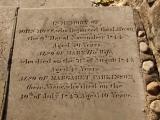 IN MEMORY OF
JOHN MOSS, who departed this Life
the 8th Day of November 1844
Aged 59 Years.
Also of MARY His Wife
who died on the 5th of August 18
Aged Years
ALSO OF MARGARET PARKINSON
their Niece, who died on the
10th of July 1845, Aged 40 Years